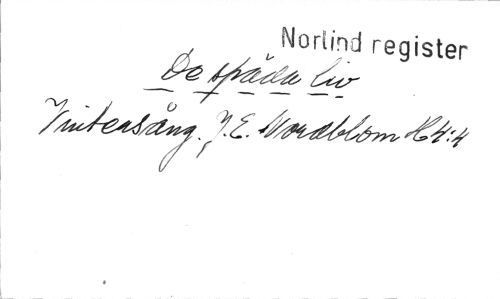 Norlind register
De späda liv
Vintersång. J. E. Nordblom H4:4